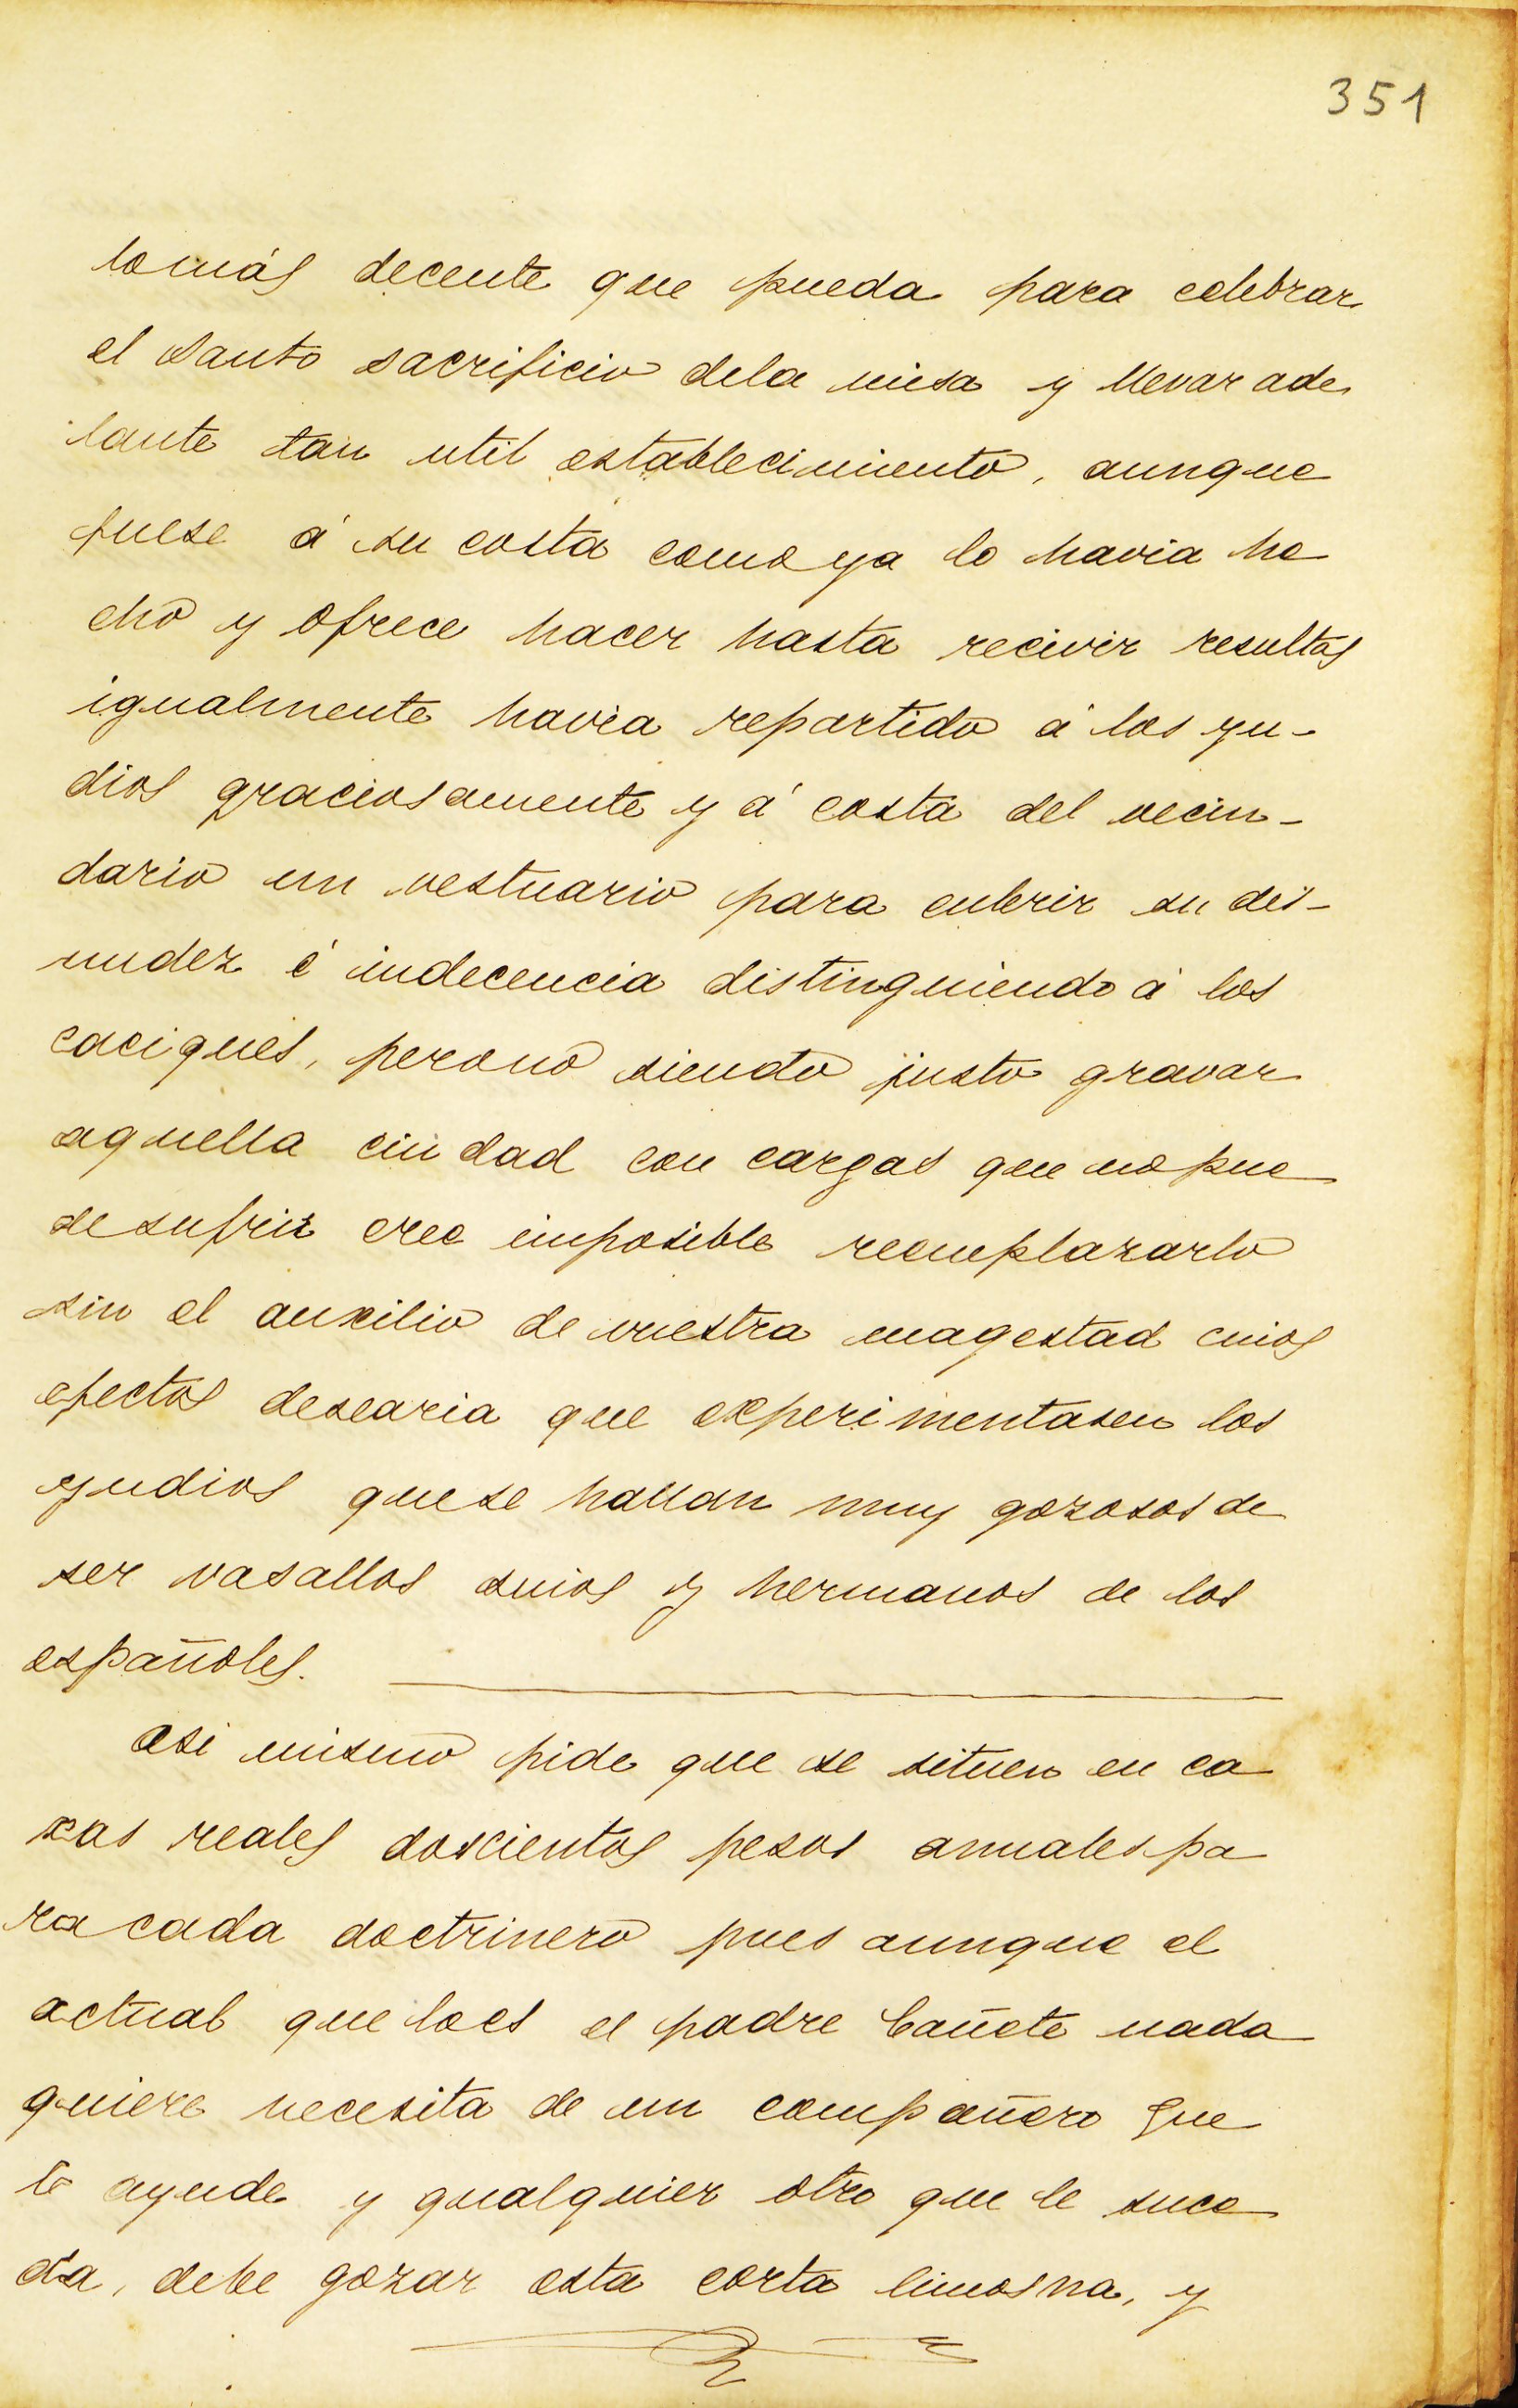 351
lo más decente que pueda para celebrar
el Santo sacrificio dela misa y llevar ade
lante tan util establecimiento, aunque
fuese á su costa como ya lo havia he
cho y ofrece hacer hasta recivir resultas
igualmente havia repartido á los yn-
dios graciosamente y á costa del vecin-
dario un vestuario para cubrir su des-
nudez é indecencia distinguiendo á los
caciques, perono siendo justo gravar
aquella ciudad con cargas que no pue
de sufrir cree imposible reemplazarlo
sin el auxilio de vuestra magestad cuios
efectos desearia que experimentasen los
yndios quese hallan muy gozosos de
ser vasallos suios y hermanos de los
españoles.
Asi mismo pide que se situen en ca
xas reales doscientos pesos anuales pa
ra cada doctrinero pues aunque el
actual que loes el padre Cañete nada
quiere necesita de un compañero que
le ayude y qualquier otro que le suce
da, debe gozar esta corta limosna, y